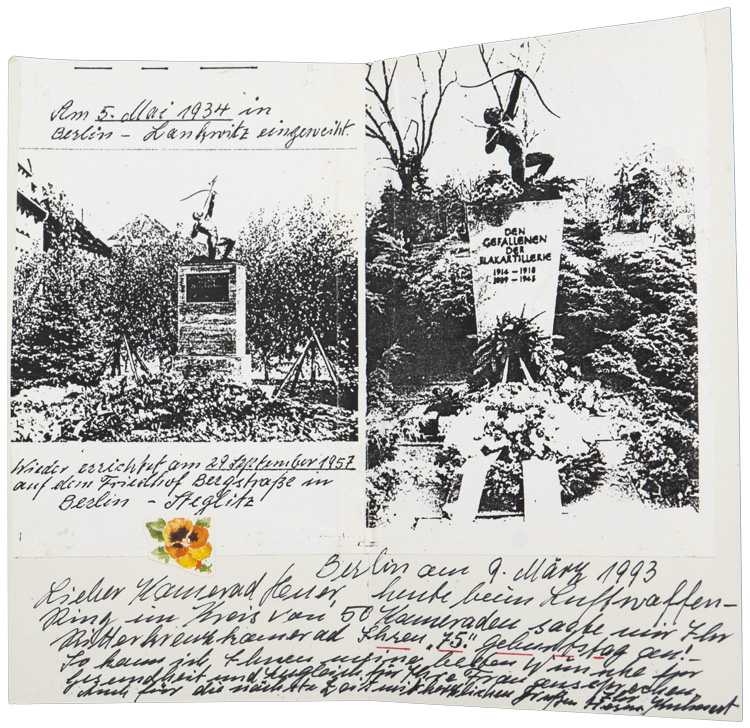 Am 5. Mai 1934 in
Berlin – Lankwitz eingeweiht.
DEN
GEFALLENEN
DER
FLAKARTILLERIE
1914 – 1918
1939 – 1945
Wieder errichtet am 29. September 1957
auf dem Friedhof Bergstraße in
Berlin – Steglitz
Berlin am 9. März 1993
Lieber Kamerad Heuer, heute beim Luftwaffen-
Ring im Kreis von 50 Kameraden sagte mir Ihr
Ritterkreuzkamerad Ihren "75." geburtstag an!-
So kann ich Ihnen meine besten Wünsche für
gesundheit und zugleich für Ihre Frau aussprechen
Auch für die nächste Zeit mit herzlichen Grüßen Ihr
Heinz